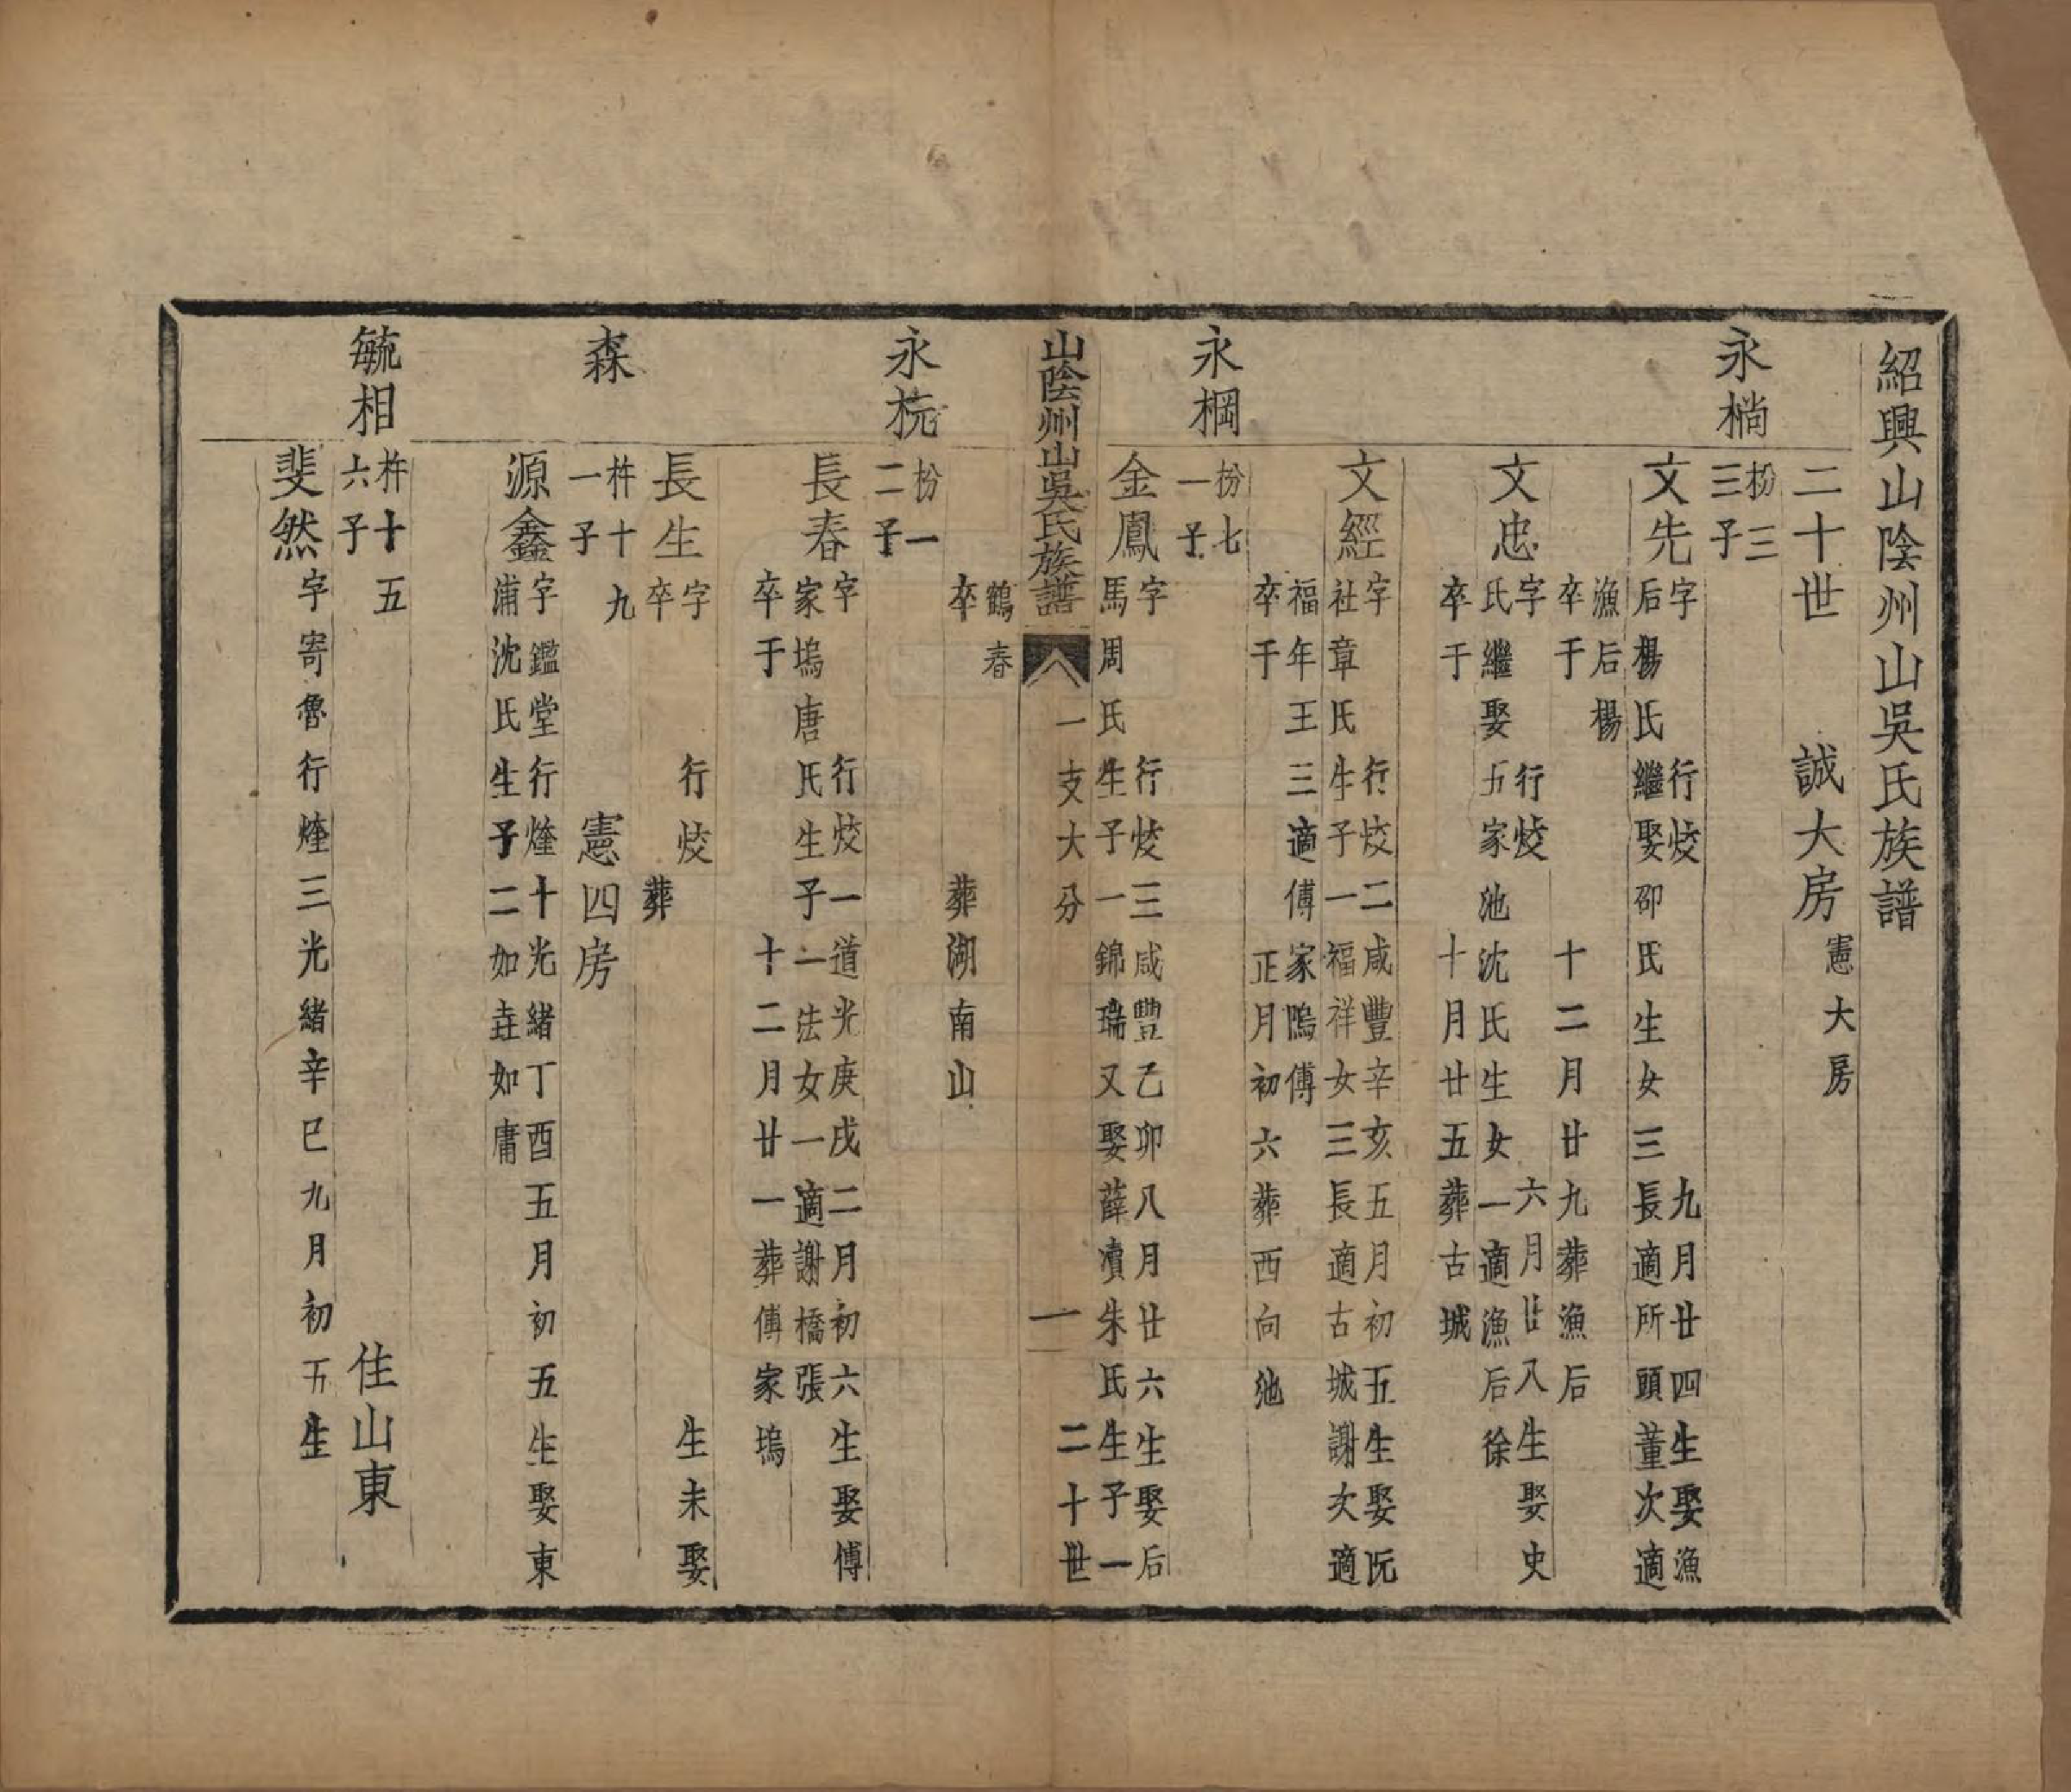 紹興山陰州山吳氏族譜
二十世 誠大房 憲大房
永橢 枌三 三子
文先 字 行烄 九月廿四生娶漁
后楊氏繼娶邵氏生女三長適所頭董次適
漁后楊
卒于 十二月廿九葬漁后
文忠 字 行烄 六月廿八生娶史
氏繼娶五家池沈氏生女一適漁后徐
卒于 十月廿五葬古城
文經 字 行烄二咸豐辛亥五月初五生娶阮
社章氏生子一福祥女三長適古城謝次適
福年王三適傅家隖傅
卒于 正月初六葬西向池
永棡 枌七 一子
金鳳 字 行烄三咸豐乙卯八月廿六生娶后
馬周氏生子一錦瑞又娶薛瀆朱氏生子一
山陰州山吳氏族譜 一支大分 一 二十世
鶴春
卒 葬湖南山
永杬 枌一 二子
長春 字 行烄一道光庚戌二月初六生娶傅
家塢唐氏生子一法女一適謝橋張
卒于 十二月廿一葬傅家塢
長生 字 行烄 生未娶
卒 葬
憲四房
森 杵十九 一子
源鑫 字鑑堂行烽十光緒丁酉五月初五生娶東
浦沈氏生子二如垚如庸
毓相 杵十五 六子 住山東
斐然 字寄魯行烽三光緒辛巳九月初五生